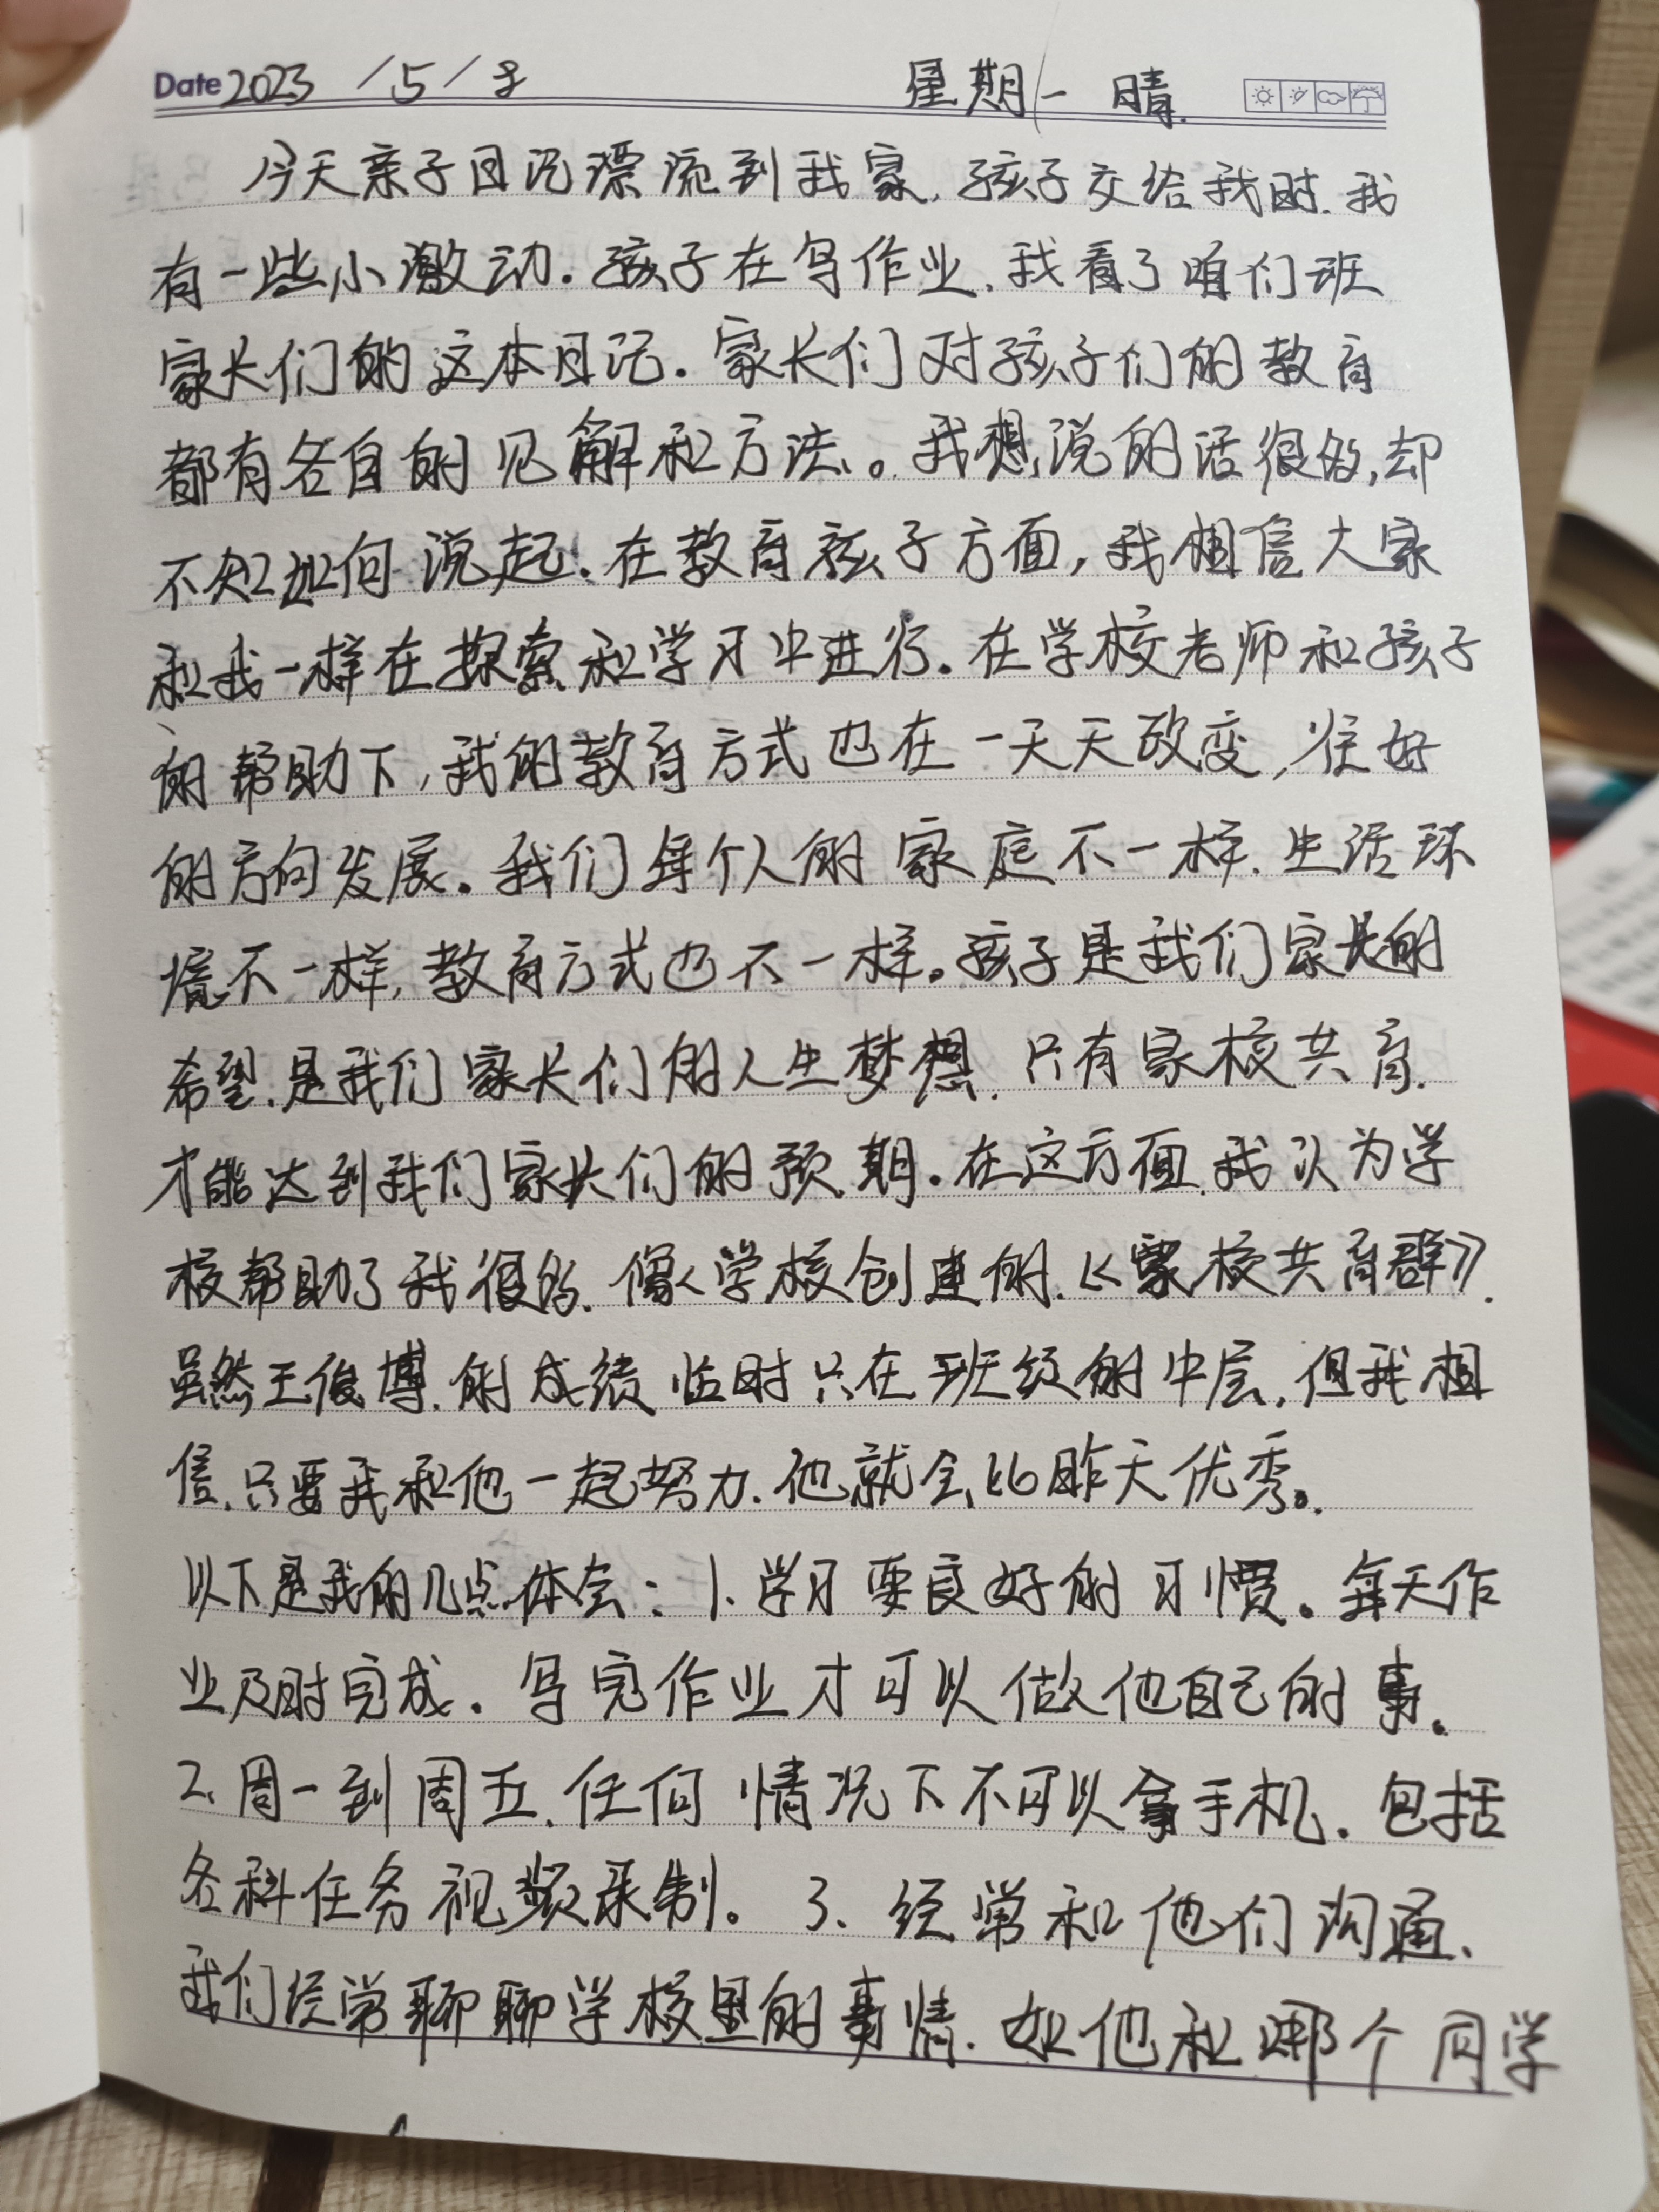 Date 2023 / 5 / 8 星期一 晴.
今天亲子日记漂流到我家,孩子交给我时.我
有一些小激动.孩子在写作业.我看了咱们班
家长们的这本日记.家长们对孩子们的教育
都有各自的见解和方法。我想说的话很多,却
不知如何说起.在教育孩子方面,我相信大家
和我一样在探索和学习中进行.在学校老师和孩子
的帮助下,我的教育方式也在一天天改变,往好
的方向发展.我们每个人的家庭不一样.生活环
境不一样,教育方式也不一样.孩子是我们家长的
希望.是我们家长们的人生梦想.只有家校共育.
才能达到我们家长们的预期.在这方面.我认为学
校帮助了我很多.像学校创建的.《家校共育群》.
虽然王俊博.的成绩临时只在班级的中层,但我相
信.只要我和他一起努力.他就会比昨天优秀。
以下是我的几点体会:1.学习要良好的习惯.每天作
业及时完成.写完作业才可以做他自己的事.
2.周一到周五.任何情况下不可以拿手机.包括
各科任务视频录制。3、经常和他们沟通、
我们经常聊聊学校里的事情.如他和哪个同学